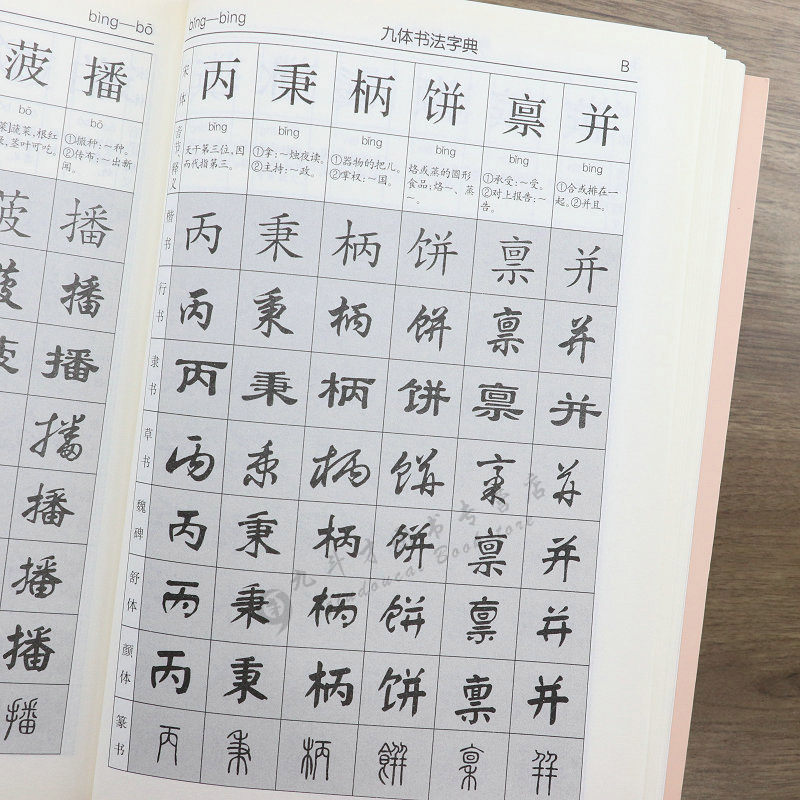 bìng—bō
菠 播
bō bō
①撒种:~种。
②传布:~出新
闻。
菠 播
播
播
播
播
播
播
播
bǐng—bìng 九体书法字典 B
宋体 丙 秉 柄 饼 禀 并
音节、释义 bǐng bǐng bǐng bǐng bǐng bìng
天干第三位,因
而代指第三。
①拿:~烛夜读。
②主持:~政。
①器物的把儿。
②掌权:~国。
烙或蒸的圆形
食品:烙~、蒸
~。
①承受:~受。
②对上报告:~
告。
①合或排在一
起。②并且。
楷书 丙 秉 柄 饼 禀 并
行书 丙 秉 柄 饼 禀 并
隶书 丙 秉 柄 饼 禀 并
草书 丙 秉 柄 饼 禀 并
魏碑 丙 秉 柄 饼 禀 并
舒体 丙 秉 柄 饼 禀 并
颜体 丙 秉 柄 饼 禀 并
篆书 丙 秉 柄 餅 禀 并